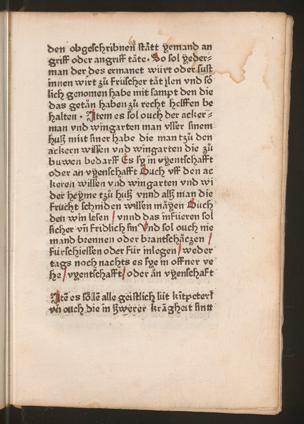 den obgeschribnen stått yemand an
griff oder angriff tåte · So sol yeder-
man der des ermanet würt oder sust
innen wirt zu frischer tåt ylen vnd so
lich genomen habe mit sampt den die
das getån haben zu recht helffen be
halten · Item es sol ouch der acker-
man vnd wingarten man vsser sinem
huß mitt siner habe die man tzu den
ackern wissen vnd wingarten die zu
buwen bedarff Es sy in vyentschafft
oder an vyentschafft Ouch vff den ac
keren wissen vnd wingarten vnd wi
der heyme tzu huß vnnd alß man die
frücht schniden wissen mågen Ouch
den win lesen / vnnd das infüeren sol
sicher vn fridlich sin Vnd sol ouch nie
mand brennen oder brantschåczen /
fürschiessen oder für inlegen / weder
tags noch nachts es sye in offner ve
he / vyentschafft / oder an vyentschaft
Ite es sölle alle geistlich lüt
vn ouch die in swerer kragheit sint